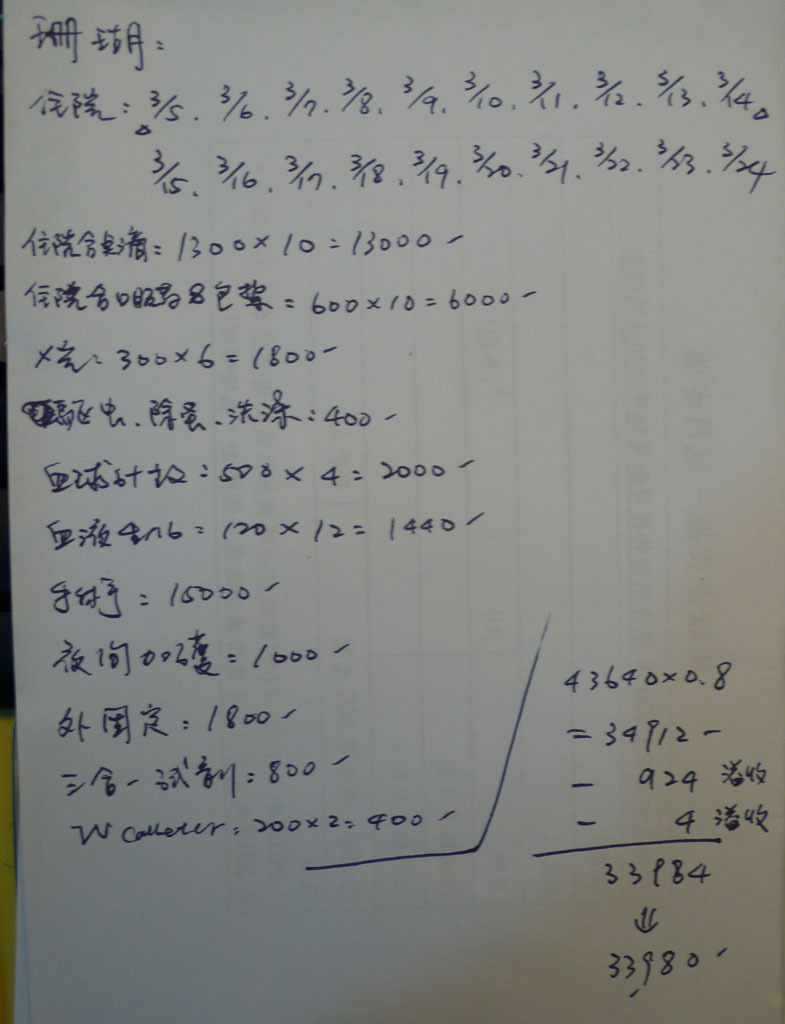 珊瑚：
住院：3/5、3/6、3/7、3/8、3/9、3/10、3/11、3/12、3/13、3/14。
3/15、3/16、3/17、3/18、3/19、3/20、3/21、3/22、3/23、3/24
住院含點滴：1300×10=13000-
住院含口服藥&包紮=600×10=6000-
X光：300×6=1800-
驅虫、除蚤、洗滌：400-
血球計數：500×4=2000-
血液生化：120×12=1440-
手術=15000-
夜間加成=1000-
外固定：1800-
三合一試劑：800-
IV catheter=200×2=400-
43640×0.8
=34912-
- 924 溢收
- 4 溢收
33984
⇓
33980-